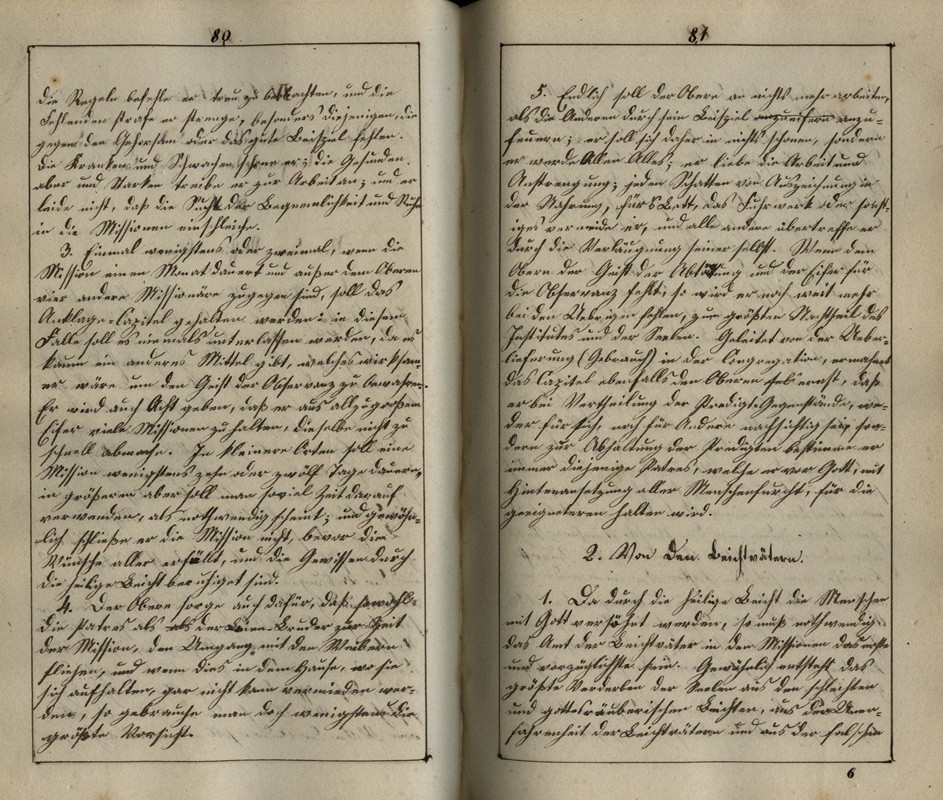 80
die Regeln befehle er treu zu beobachten, und die
Fehlenden strafe er strenge, besonders diejenigen, die
gegen den Gehorsam oder das gute Beispiel fehlen.
Die Kranken und Schwachen schone er; die Gesunden
aber und Starken treibe er zur Arbeit an; und er
leide nicht, daß die Sucht der Bequemlichkeit und Ruhe
in die Missionen einschleiche.
3. Einmal wenigstens oder zweimal, wenn die
Mission einen Monat dauert und außer dem Oberen
vier andere Missionäre zugegen sind, soll das
Anklage-Capitel gehalten werden: in diesem
Falle soll es niemals unterlassen werden, da es
kaum ein anderes Mittel gibt, welches wirksam-
er wäre um den Geist der Observanz zu bewahren.
Er wird auch Acht geben, daß er aus allzugroßem
Eifer viele Missionen zu halten, dieselbe nicht zu
schnell abmache. In kleinere Orten soll eine
Mission wenigstens zehn oder zwölf Tage dauern,
in größeren aber soll man soviel Zeit darauf
verwenden, als nothwendig scheint; und gewöhn-
lich schließe er die Mission nicht, bevor die
Wünsche aller erfüllt, und die Gewissen durch
die heilige Beicht beruhiget sind.
4. Der Obere sorge auch dafür, daß sowohl
die Patres als der Laien-Bruder zur Zeit
der Mission, den Umgang mit den Weibern
fliehen, und wenn dies in dem Hause, wo sie
sich aufhalten, gar nicht kann vermieden wer-
den, so gebrauche man doch wenigstens die
größte Vorsicht.
81
5. Endlich soll der Obere an nichts mehr arbeiten,
als die Anderen durch sein Beispiel anzueifern anzu-
feuern; er soll sich daher in nichts schonen, sondern
er werde Allen Alles; er liebe die Arbeit und
Anstrengung; jeden Schatten von Auszeichnung in
der Nahrung, fürs Bett, das Fuhrwerk oder sonst-
iges vermeide er, und alle andere übertreffe er
durch die Verläugnung seiner selbst. Wenn dem
Obern der Geist der Abtödtung und der Eifer für
die Observanz fehlt, so wird er noch weit mehr
bei den Uebrigen fehlen, zum größten Nachtheil des
Institutes und der Seelen. Geleitet von der Ueber-
lieferung (Gebrauch) in der Congregation, ermahnt
das Capitel ebenfalls den Oberen sehr ernst, daß
er bei Vertheilung der Predigt-Gegenstände, we-
der für sich, noch für Andere nachsichtig sey, son-
dern zur Abhaltung der Predigten bestimme er
immer diejenige Patres, welche er vor Gott, mit
Hintenansetzung aller Menschenfurcht, für die
geeigneteren halten wird.
2. Von den Beichtvätern.
1. Da durch die heilige Beicht die Menschen
mit Gott versöhnt werden, so muß nothwendig
das Amt der Beichtväter in den Missionen das erste
und vorzüglichste sein. Gewöhnlich entsteht das
größte Verderben der Seelen aus den schlechten
und gottesräuberischen Beichten, aus der Uner-
fahrenheit der Beichtvätern und aus der falschen
6